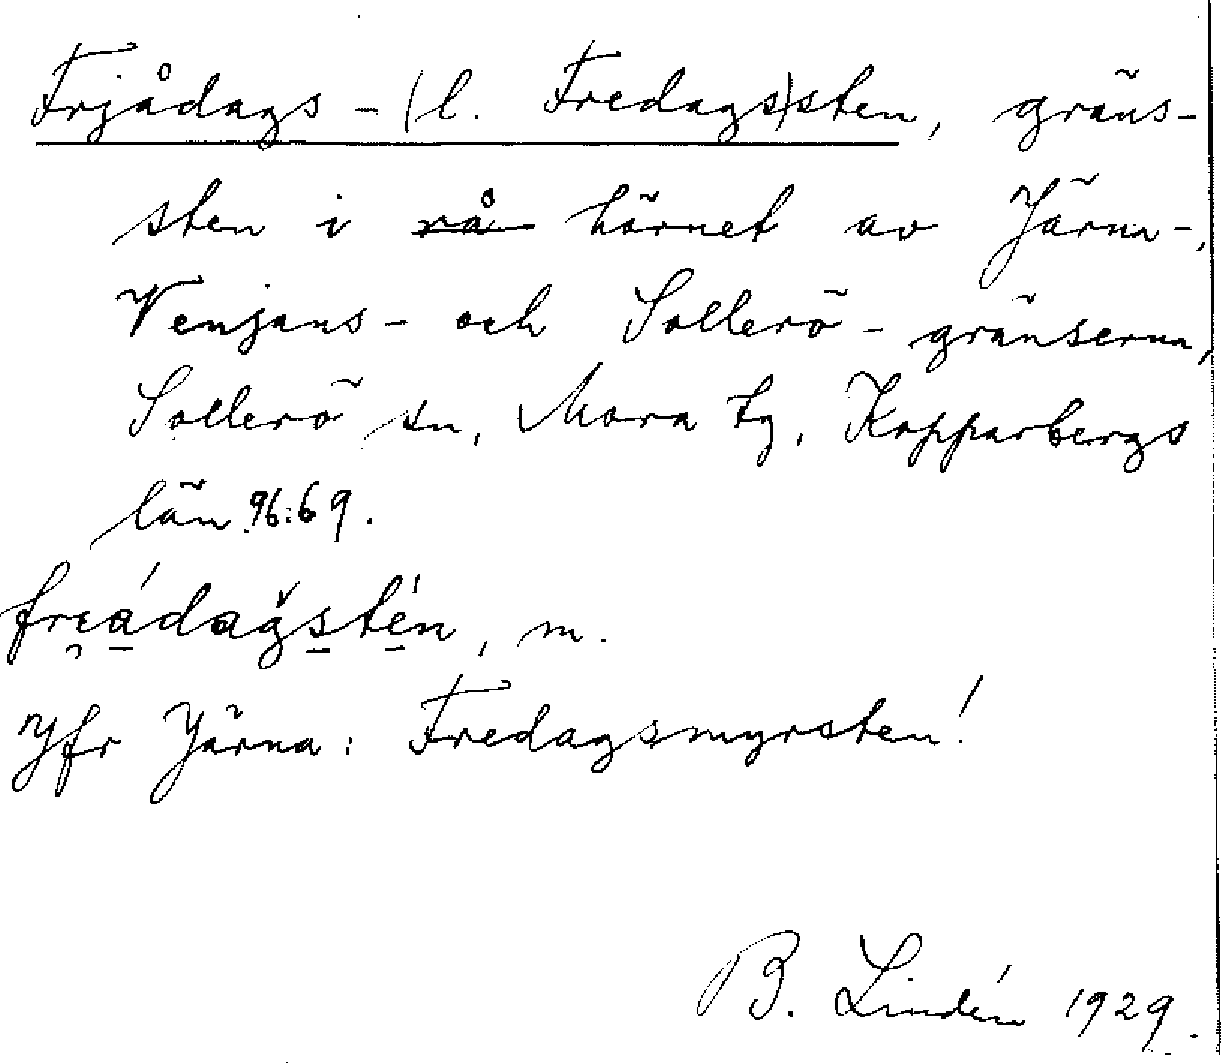 Frjådags-(l. Fredags)sten, gräns-
sten i rå hörnet av Järna-,
Venjans- och Sollerö-gränserna,
Sollerö sn, Mora tg, Kopparbergs
län 96:69.
freádagstén, m.
Jfr Järna: Fredagsmyrsten!
B. Lindén 1929.